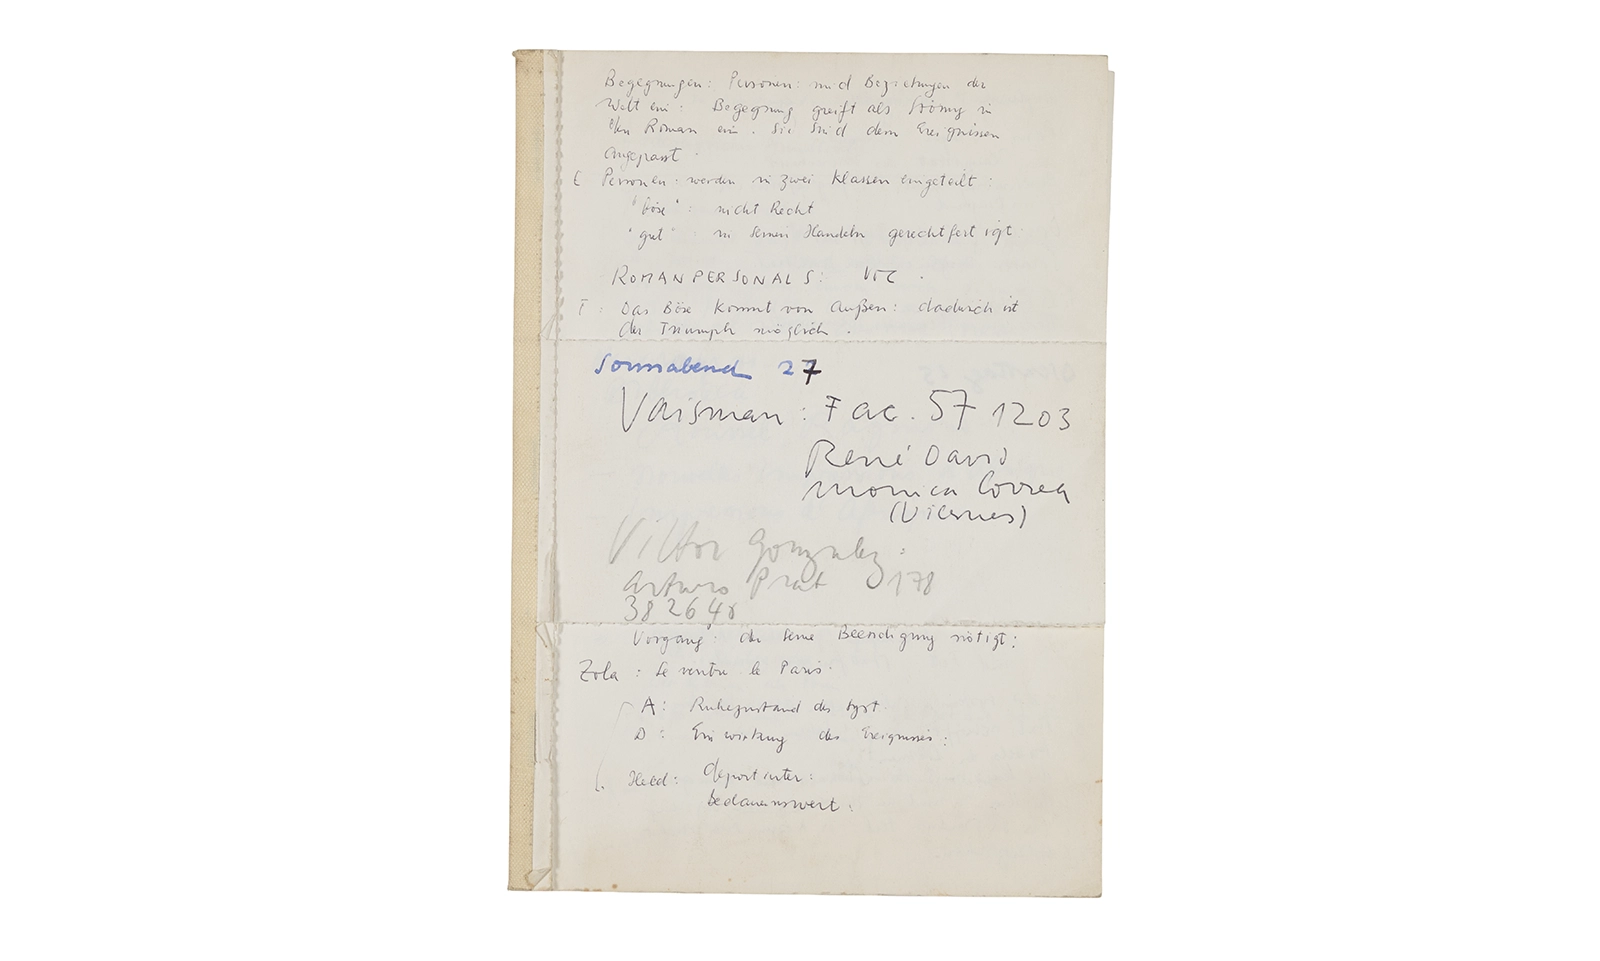 Begegnungen: Personen: und Beziehungen der
Welt ein: Begegnung greift als Störung in
den Roman ein. Sie sind dem Ereignissen
angepasst.
( Personen: werden in zwei Klassen eingeteilt:
"böse": nicht Recht
"gut": in seinem Handeln gerechtfertigt.
ROMANPERSONALS:
F: Das Böse kommt von Außen: dadurch ist
der Triumph möglich.
Sonnabend 27
Vaisman: Fac. 57 1203
René David
Monica Correa
(Viernes)
Viktor Gonzalez:
Arturo Prat 178
382648
Vorgang: der seine Beendigung nötigt:
Zola: Le ventre de Paris.
A: Ruhezustand des
D: Einwirkung des Ereignisses:
Held: deportierter:
bedauernswert: